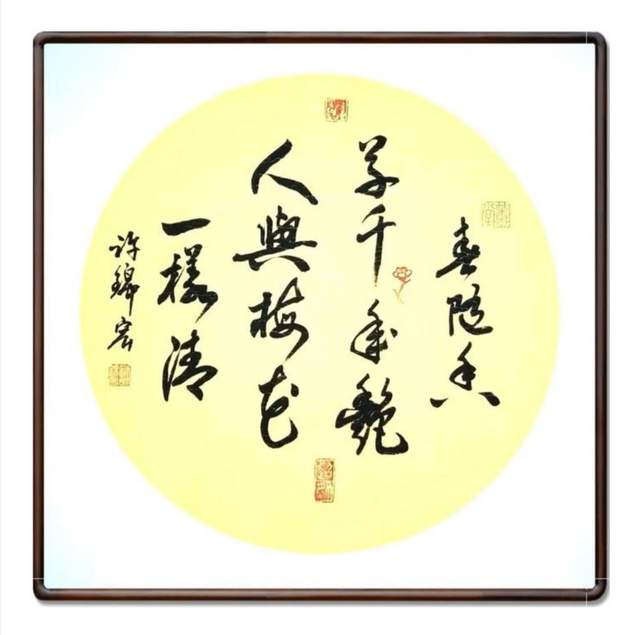 春随香
草千年艷
人與梅花
一樣清
许锦宏